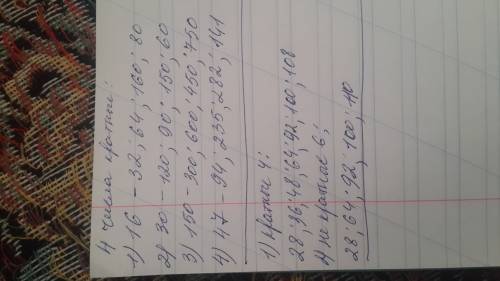 4 числа кратны:
1) 16 - 32; 64; 160; 80
2) 30 - 120; 90; 150; 60
3) 150 - 300; 600; 450; 750
4) 47 - 94; 235; 282; 141
1) кратны 4:
28; 36; 48; 64; 92; 100; 108
2) не кратное 6;
28; 64; 92; 100; 110